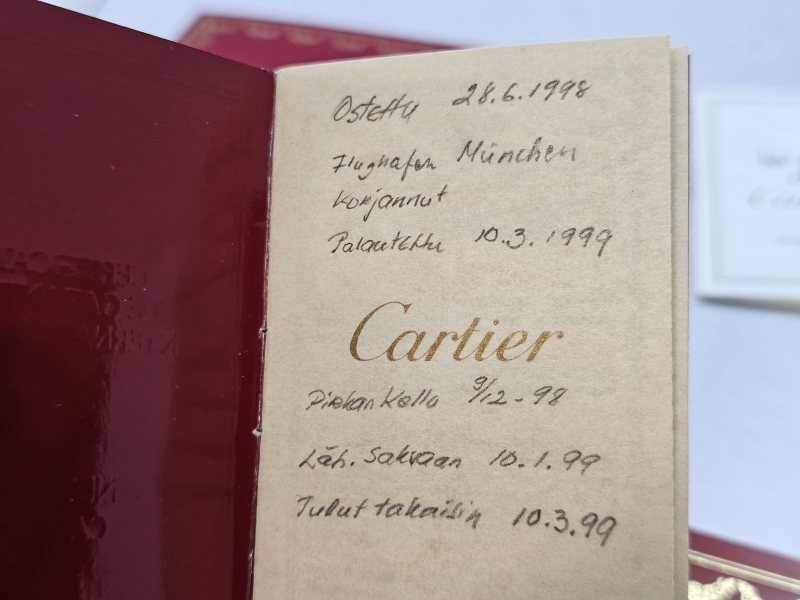 Ostettu 28.6.1998
Flughafen München
Korjannut
Palautettu 10.3.1999
Cartier
Pirkan Kello 9/12-98
Läh. Saksaan 10.1.99
Tullut takaisin 10.3.99